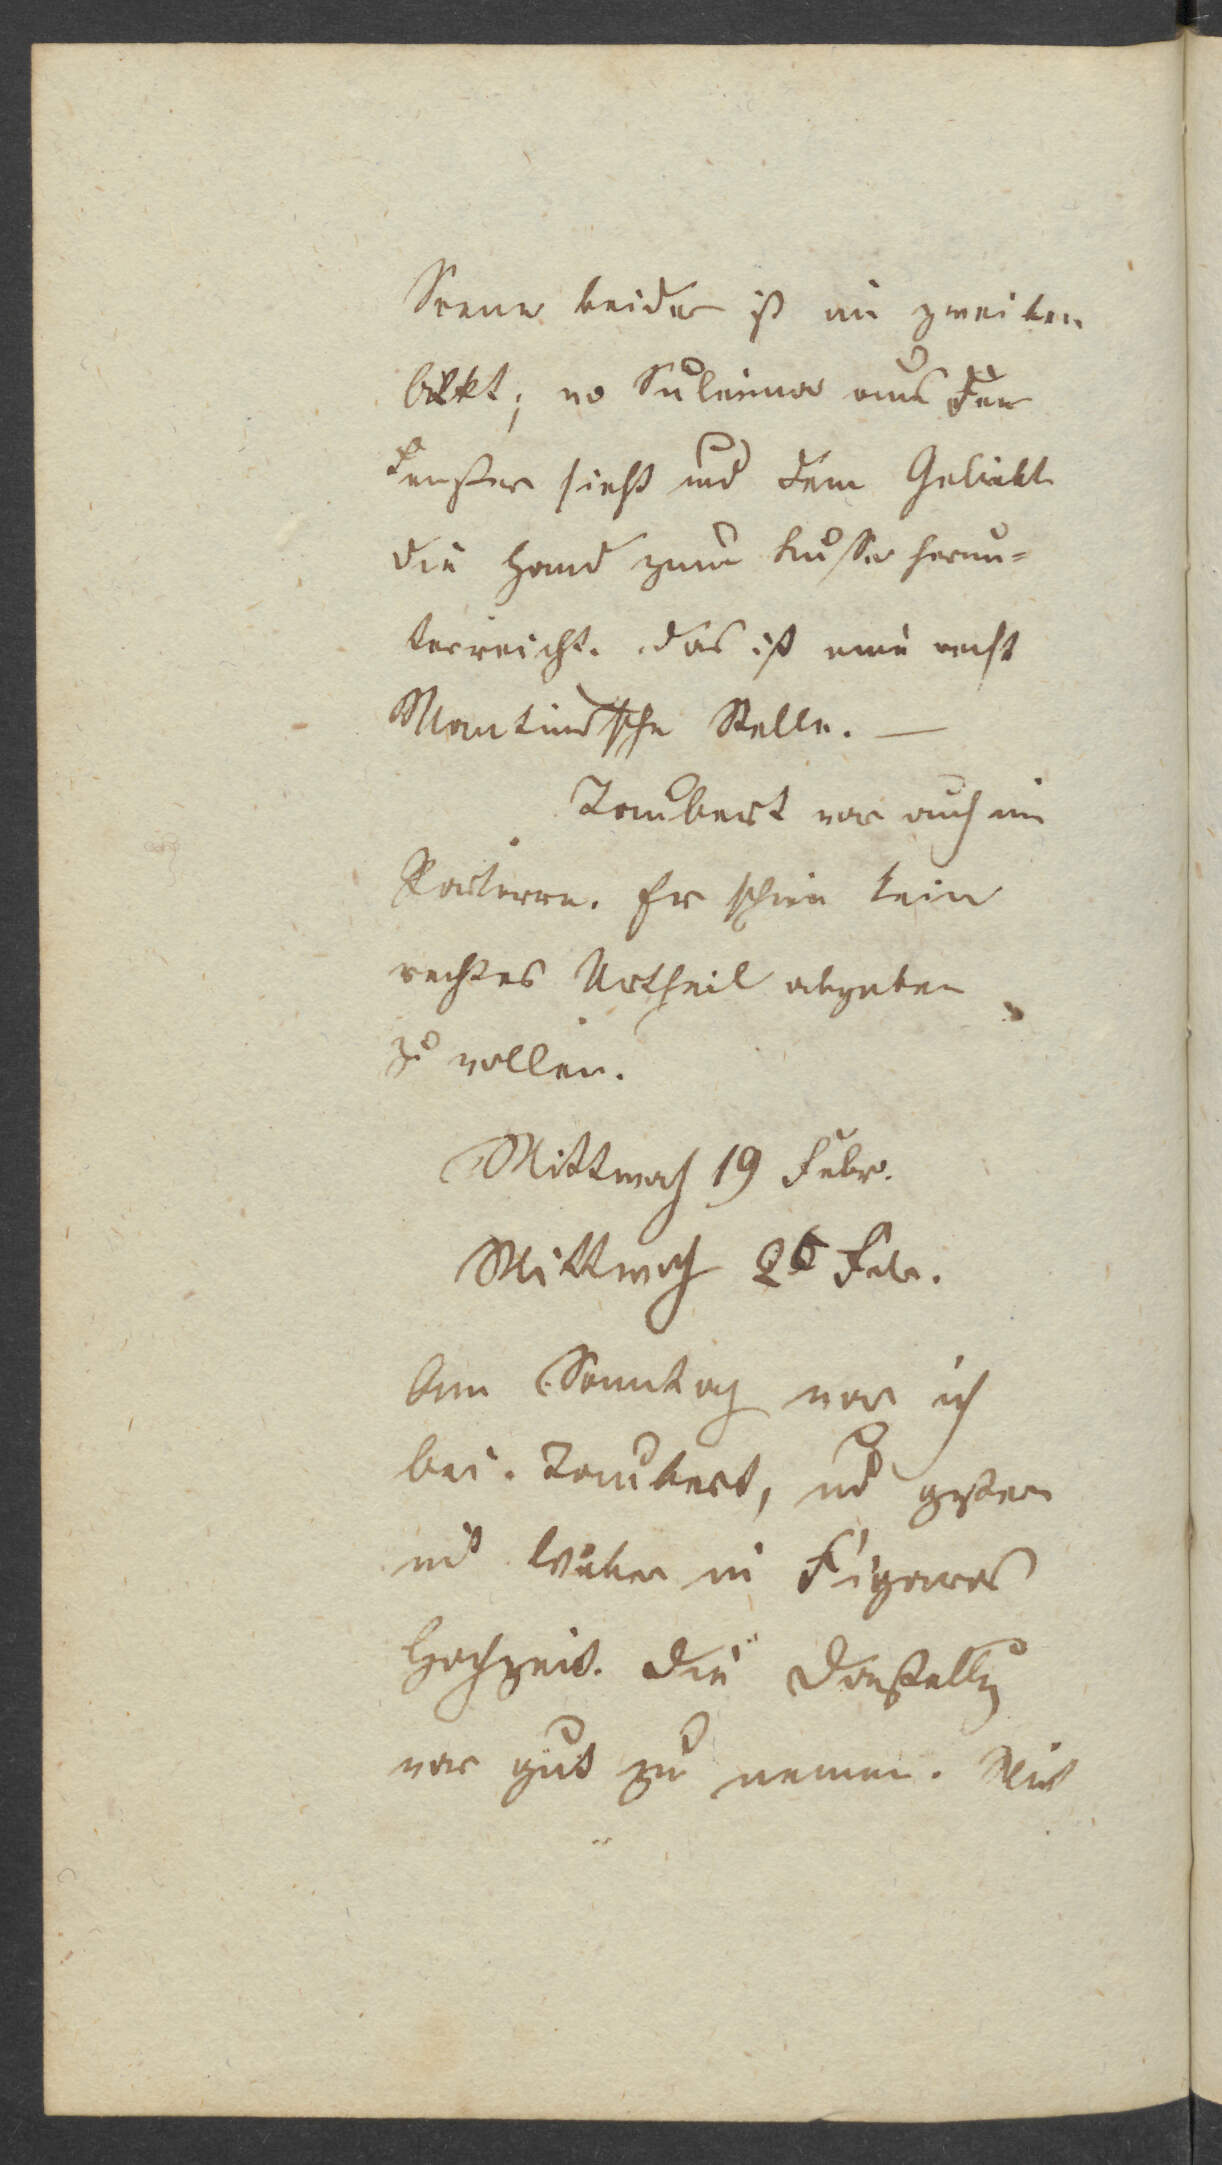 Scene beider ist im zweiten
Akt, wo Suleima aus dem
Fenster sieht und dem Geliebten
die Hand zum Kusse herun-
terreicht. das ist eine recht
Stelle. —
Taubert war auch im
Parterre. Er schien kein
rechtes Urtheil abgeben
zu wollen.
Mittwoch 19 Febr.
Mittwoch 26 Febr.
Am Sonntag war ich
bei Taubert, und gestern
mit Weber in Figaros
Hochzeit. die Darstellung
war gut zu nennen. Mit